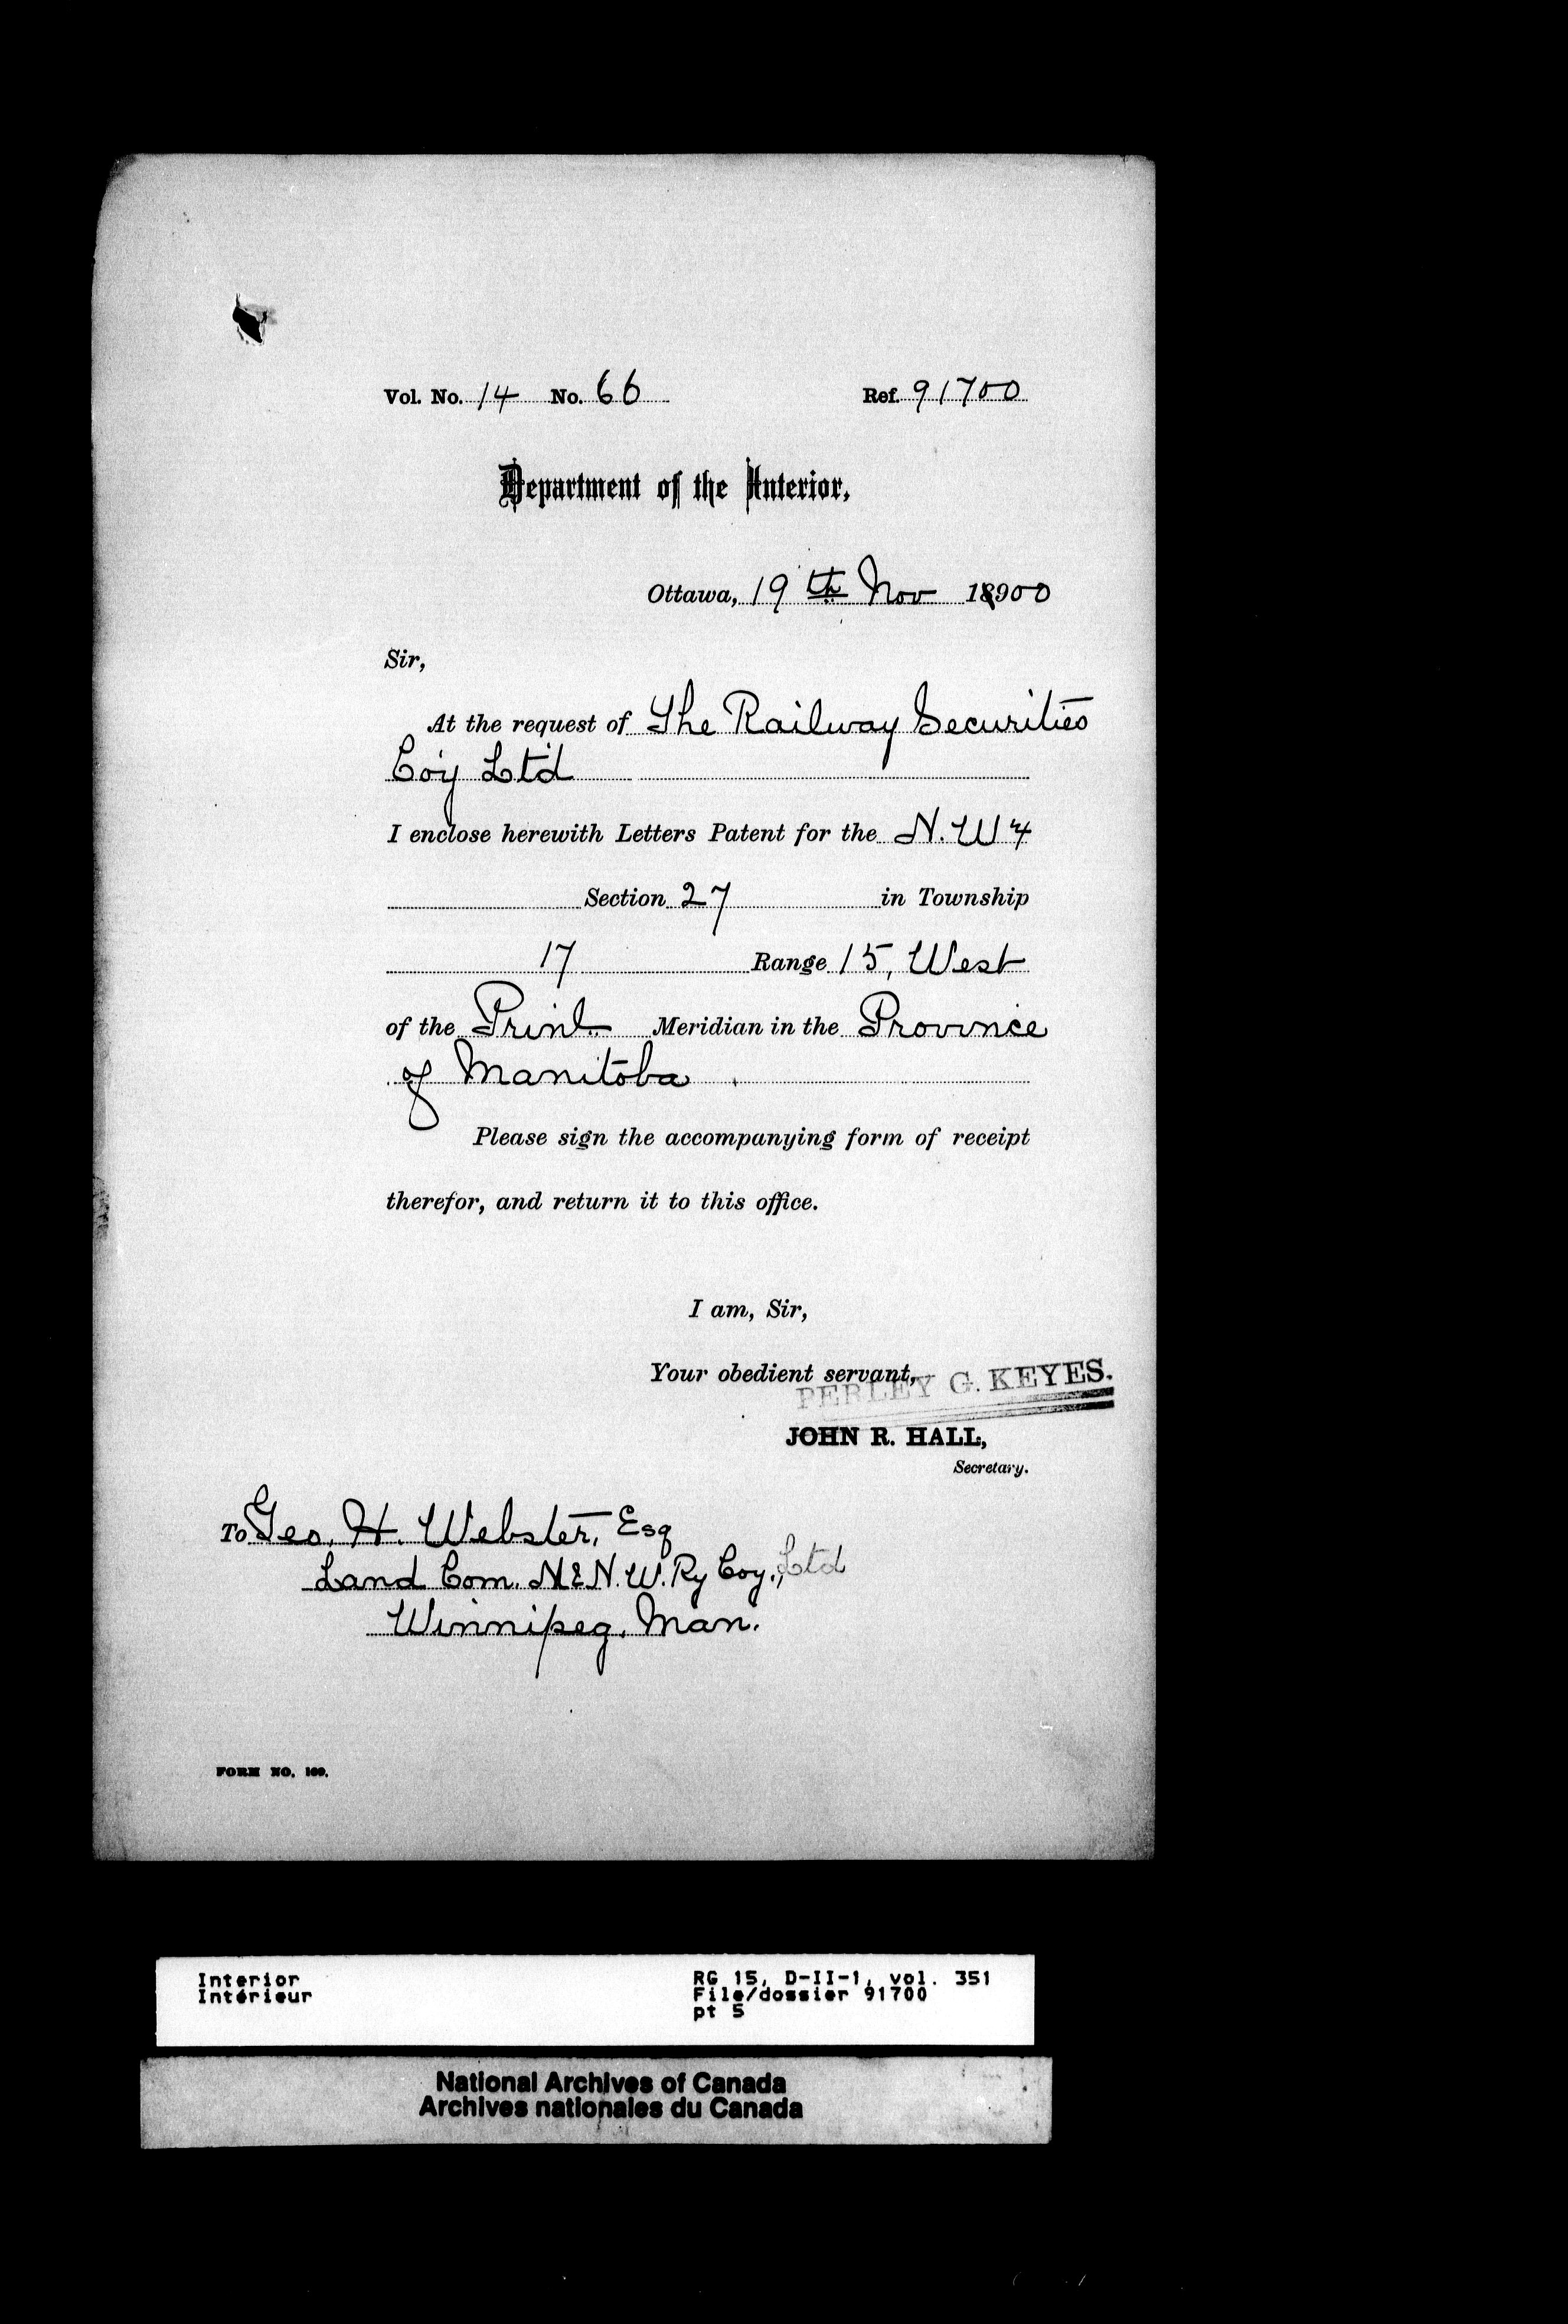 Vol. No. 14 No. 66 Ref. 91700
Department of the Interior,
Ottawa, 19th Nov 18900
Sir,
At the request of The Railway Securities
Coy Ltd
I enclose herewith Letters Patent for the N.W 4
Section 27 in Township
17 Range 15, West
of the Prinl. Meridian in the Province
of Manitoba
Please sign the accompanying form of receipt
therefor, and return it to this office.
I am, Sir,
Your obedient servant,
PERLEY G. KEYES.
JOHN R. HALL,
Secretary.
To Geo. H. Webster, Esq
Land Com. M & N. W. Ry Coy., Ltd
Winnipeg, Man.
FORM NO. 109.
Interior RG 15, D-II-1, vol. 351
Intérieur File/dossier 91700
pt 5
National Archives of Canada
Archives nationales du Canada